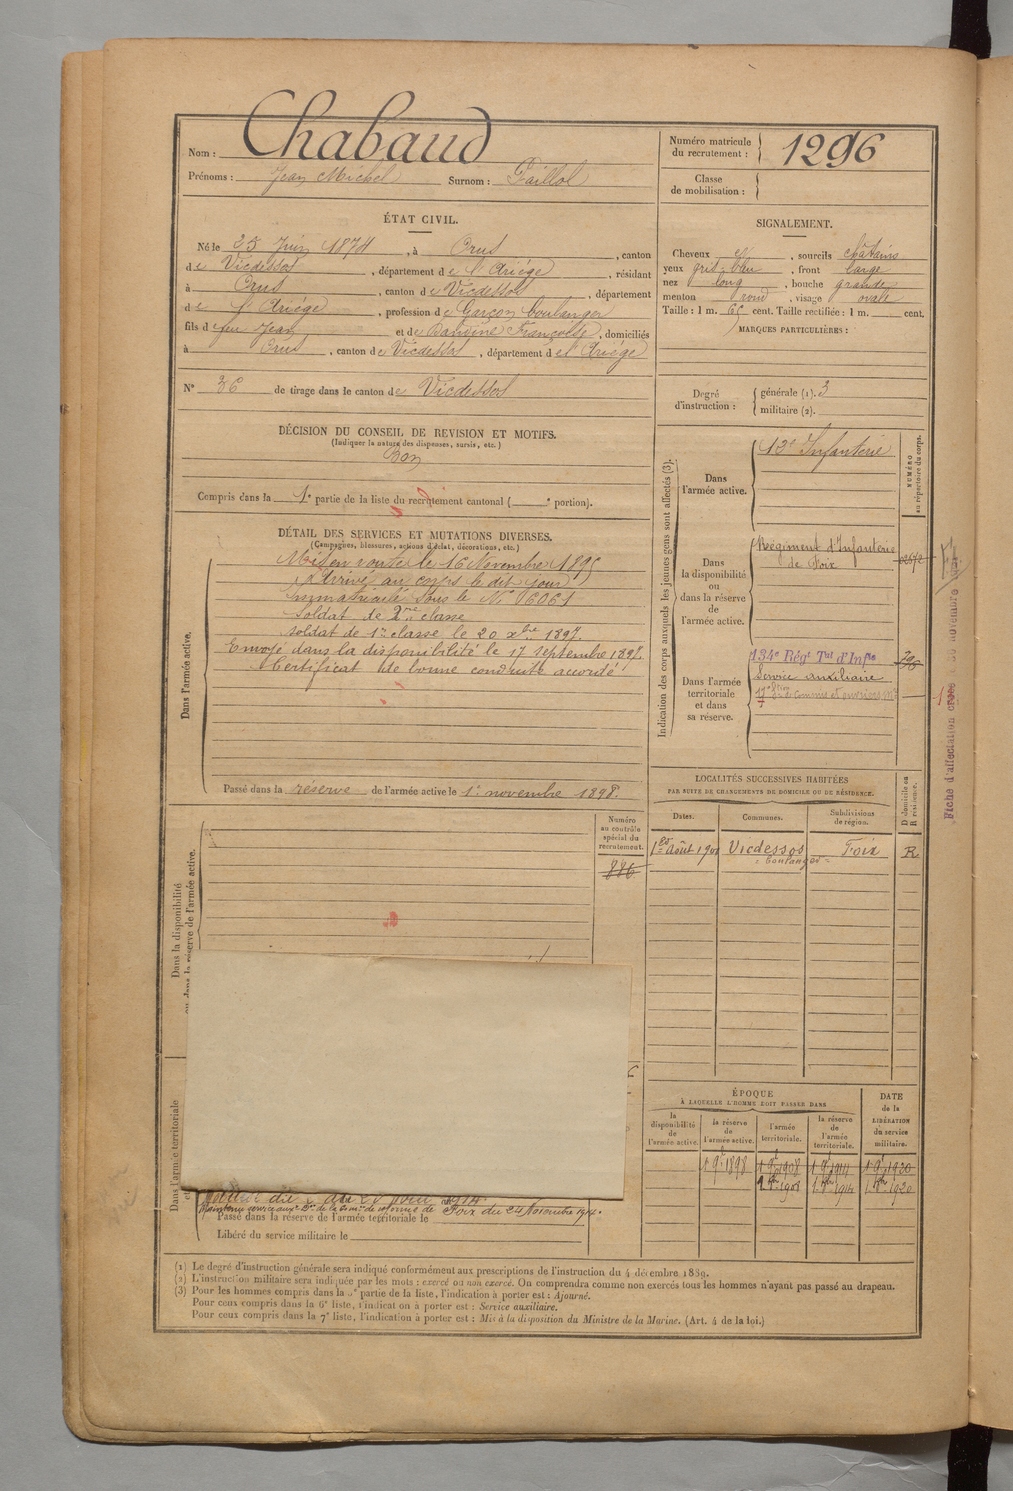 Nom : Chabaud
Prénoms : Jean Michel Surnom : Faillol
Numéro matricule du recrutement : 1296
Classe de mobilisation :
ÉTAT CIVIL.
Né le 25 Juin 1874, à Orus, canton
de Vicdessos, département de l'Ariège, résidant
à Orus, canton de Vicdessos, département
de l'Ariège, profession de Garçon boulanger
fils de feu Jean et de Françoise, domiciliés
à Orus, canton de Vicdessos, département de l'Ariège
N° 36 de tirage dans le canton de Vicdessos
SIGNALEMENT.
Cheveux et, sourcils châtains
yeux gris-bleu, front large
nez long, bouche grande
menton rond, visage ovale
Taille : 1 m. 65 cent. Taille rectifiée : 1 m. cent.
MARQUES PARTICULIÈRES :
Degré d'instruction : générale (1). 3
militaire (2).
DÉCISION DU CONSEIL DE REVISION ET MOTIFS.
(Indiquer la nature des dispenses, sursis, etc.)
Bon
Compris dans la 1e partie de la liste du recrutement cantonal ( e portion).
DÉTAIL DES SERVICES ET MUTATIONS DIVERSES.
(Campagnes, blessures, actions d'éclat, décorations, etc.)
Dans l'armée active.
Mis en route le 16 Novembre 1895
Arrivé au corps le dit jour
immatriculé sous le N° 6061
Soldat de 2me classe
soldat de 1re classe le 20 xbre 1897.
Envoyé dans la disponibilité le 17 septembre 1898.
Certificat de bonne conduite accordé
Passé dans la réserve de l'armée active le 1er novembre 1898.
Indication des corps auxquels les jeunes gens sont affectés (3).
NUMÉRO au répertoire du corps.
Dans l'armée active.
13e Infanterie
Dans la disponibilité ou dans la réserve de l'armée active.
Régiment d'Infanterie
de Foix
Dans l'armée territoriale et dans sa réserve.
134e Régt Tal d'Infie
Service auxiliaire
Fiche d'affectation
novembre
LOCALITÉS SUCCESSIVES HABITÉES
PAR SUITE DE CHANGEMENTS DE DOMICILE OU DE RÉSIDENCE.
Dates. Communes. Subdivisions de région. D domicile ou R résidence.
Août 1900 Vicdessos Foix R
Dans la disponibilité ou dans la réserve de l'armée active.
Numéro au contrôle spécial du recrutement.
886
Dans l'armée territoriale
ÉPOQUE
À LAQUELLE L'HOMME DOIT PASSER DANS
la disponibilité de l'armée active.
la réserve de l'armée active.
l'armée territoriale.
la réserve de l'armée territoriale.
DATE de la LIBÉRATION du service militaire.
1 9bre 1898 1 9bre 1908 1 9bre 1914 1 9bre 1920
1908 1914 1920
Maintenu service aux. de la comon de réforme de Foix du 24 Novembre 1914.
Passé dans la réserve de l'armée territoriale le
Libéré du service militaire le
(1) Le degré d'instruction générale sera indiqué conformément aux prescriptions de l'instruction du 4 décembre 1889.
(2) L'instruction militaire sera indiquée par les mots : exercé ou non exercé. On comprendra comme non exercés tous les hommes n'ayant pas passé au drapeau.
(3) Pour les hommes compris dans la 5e partie de la liste, l'indication à porter est : Ajourné.
Pour ceux compris dans la 6e liste, l'indication à porter est : Service auxiliaire.
Pour ceux compris dans la 7e liste, l'indication à porter est : Mis à la disposition du Ministre de la Marine. (Art. 4 de la loi.)